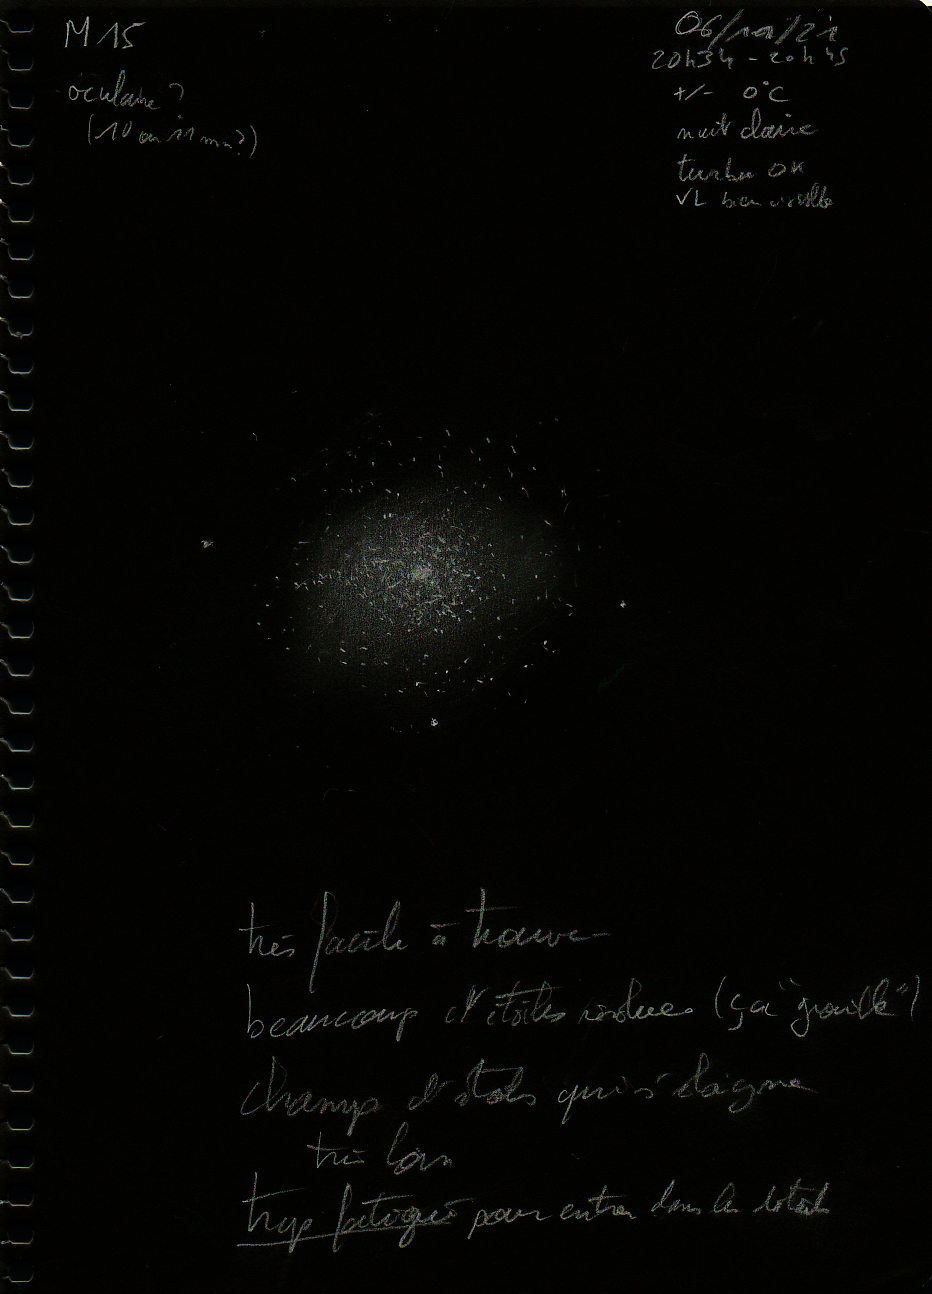 M 15
oculaire ?
(10 ou 11 mm ?)
20h34 - 20h45
+/- 0°C
nuit claire
turbu OK
VL bien visible
très facile à trouver
beaucoup d'étoiles résolues (ça "grouille")
champ d'étoiles qui s'éloigne
très loin
trop fatigué pour entrer dans les détails